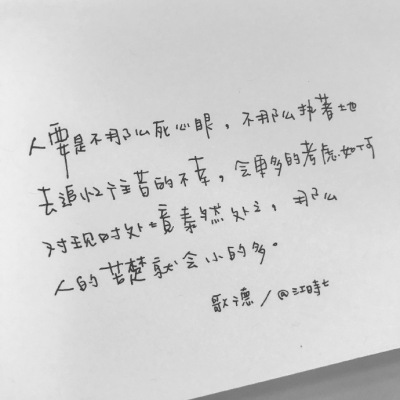 人要是不那么死心眼，不那么执著地
去追忆往昔的不幸，会更多的考虑如何
对现时处境泰然处之，那么
人的苦楚就会小的多。
歌德／@江時七